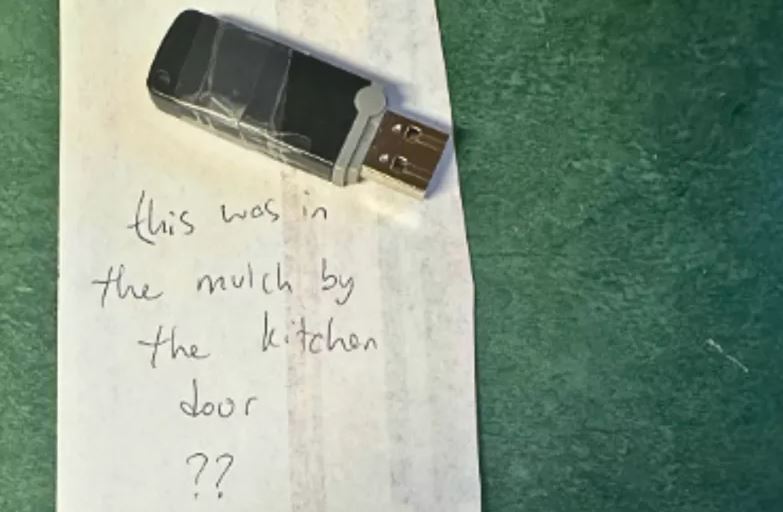 this was in
the mulch by
the kitchen
door
??